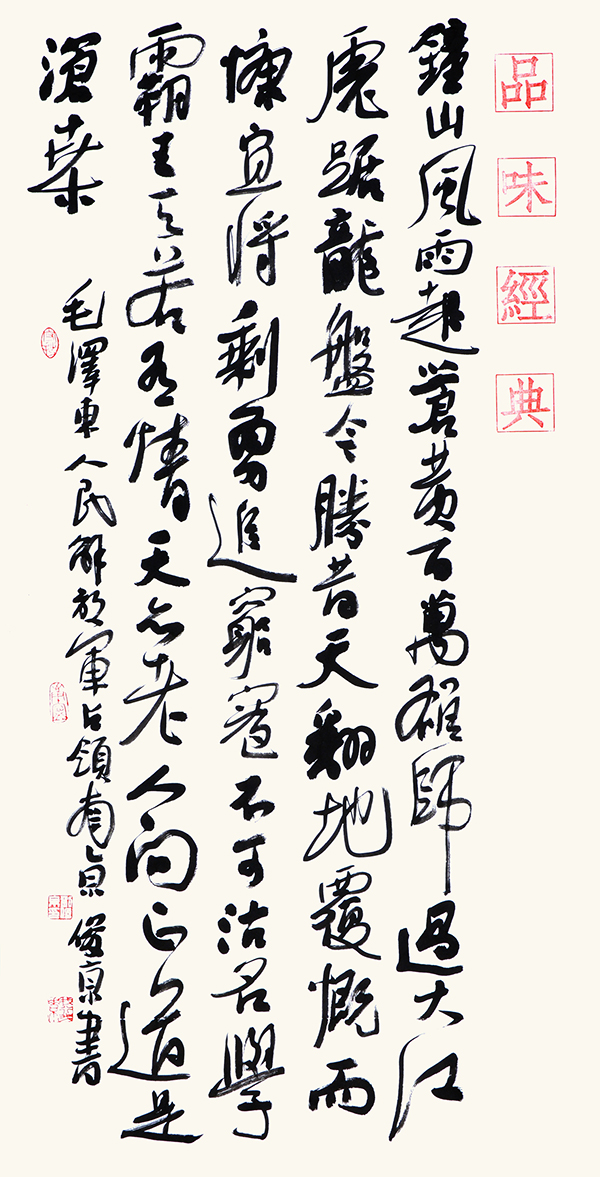 品味經典
鐘山風雨起蒼黄百萬雄師過大江
虎踞龍盤今勝昔天翻地覆慨而
慷宜将剩勇追窮寇不可沽名學
霸王天若有情天亦老人间正道是
滄桒
毛澤東人民解放軍占領南京 俊京書